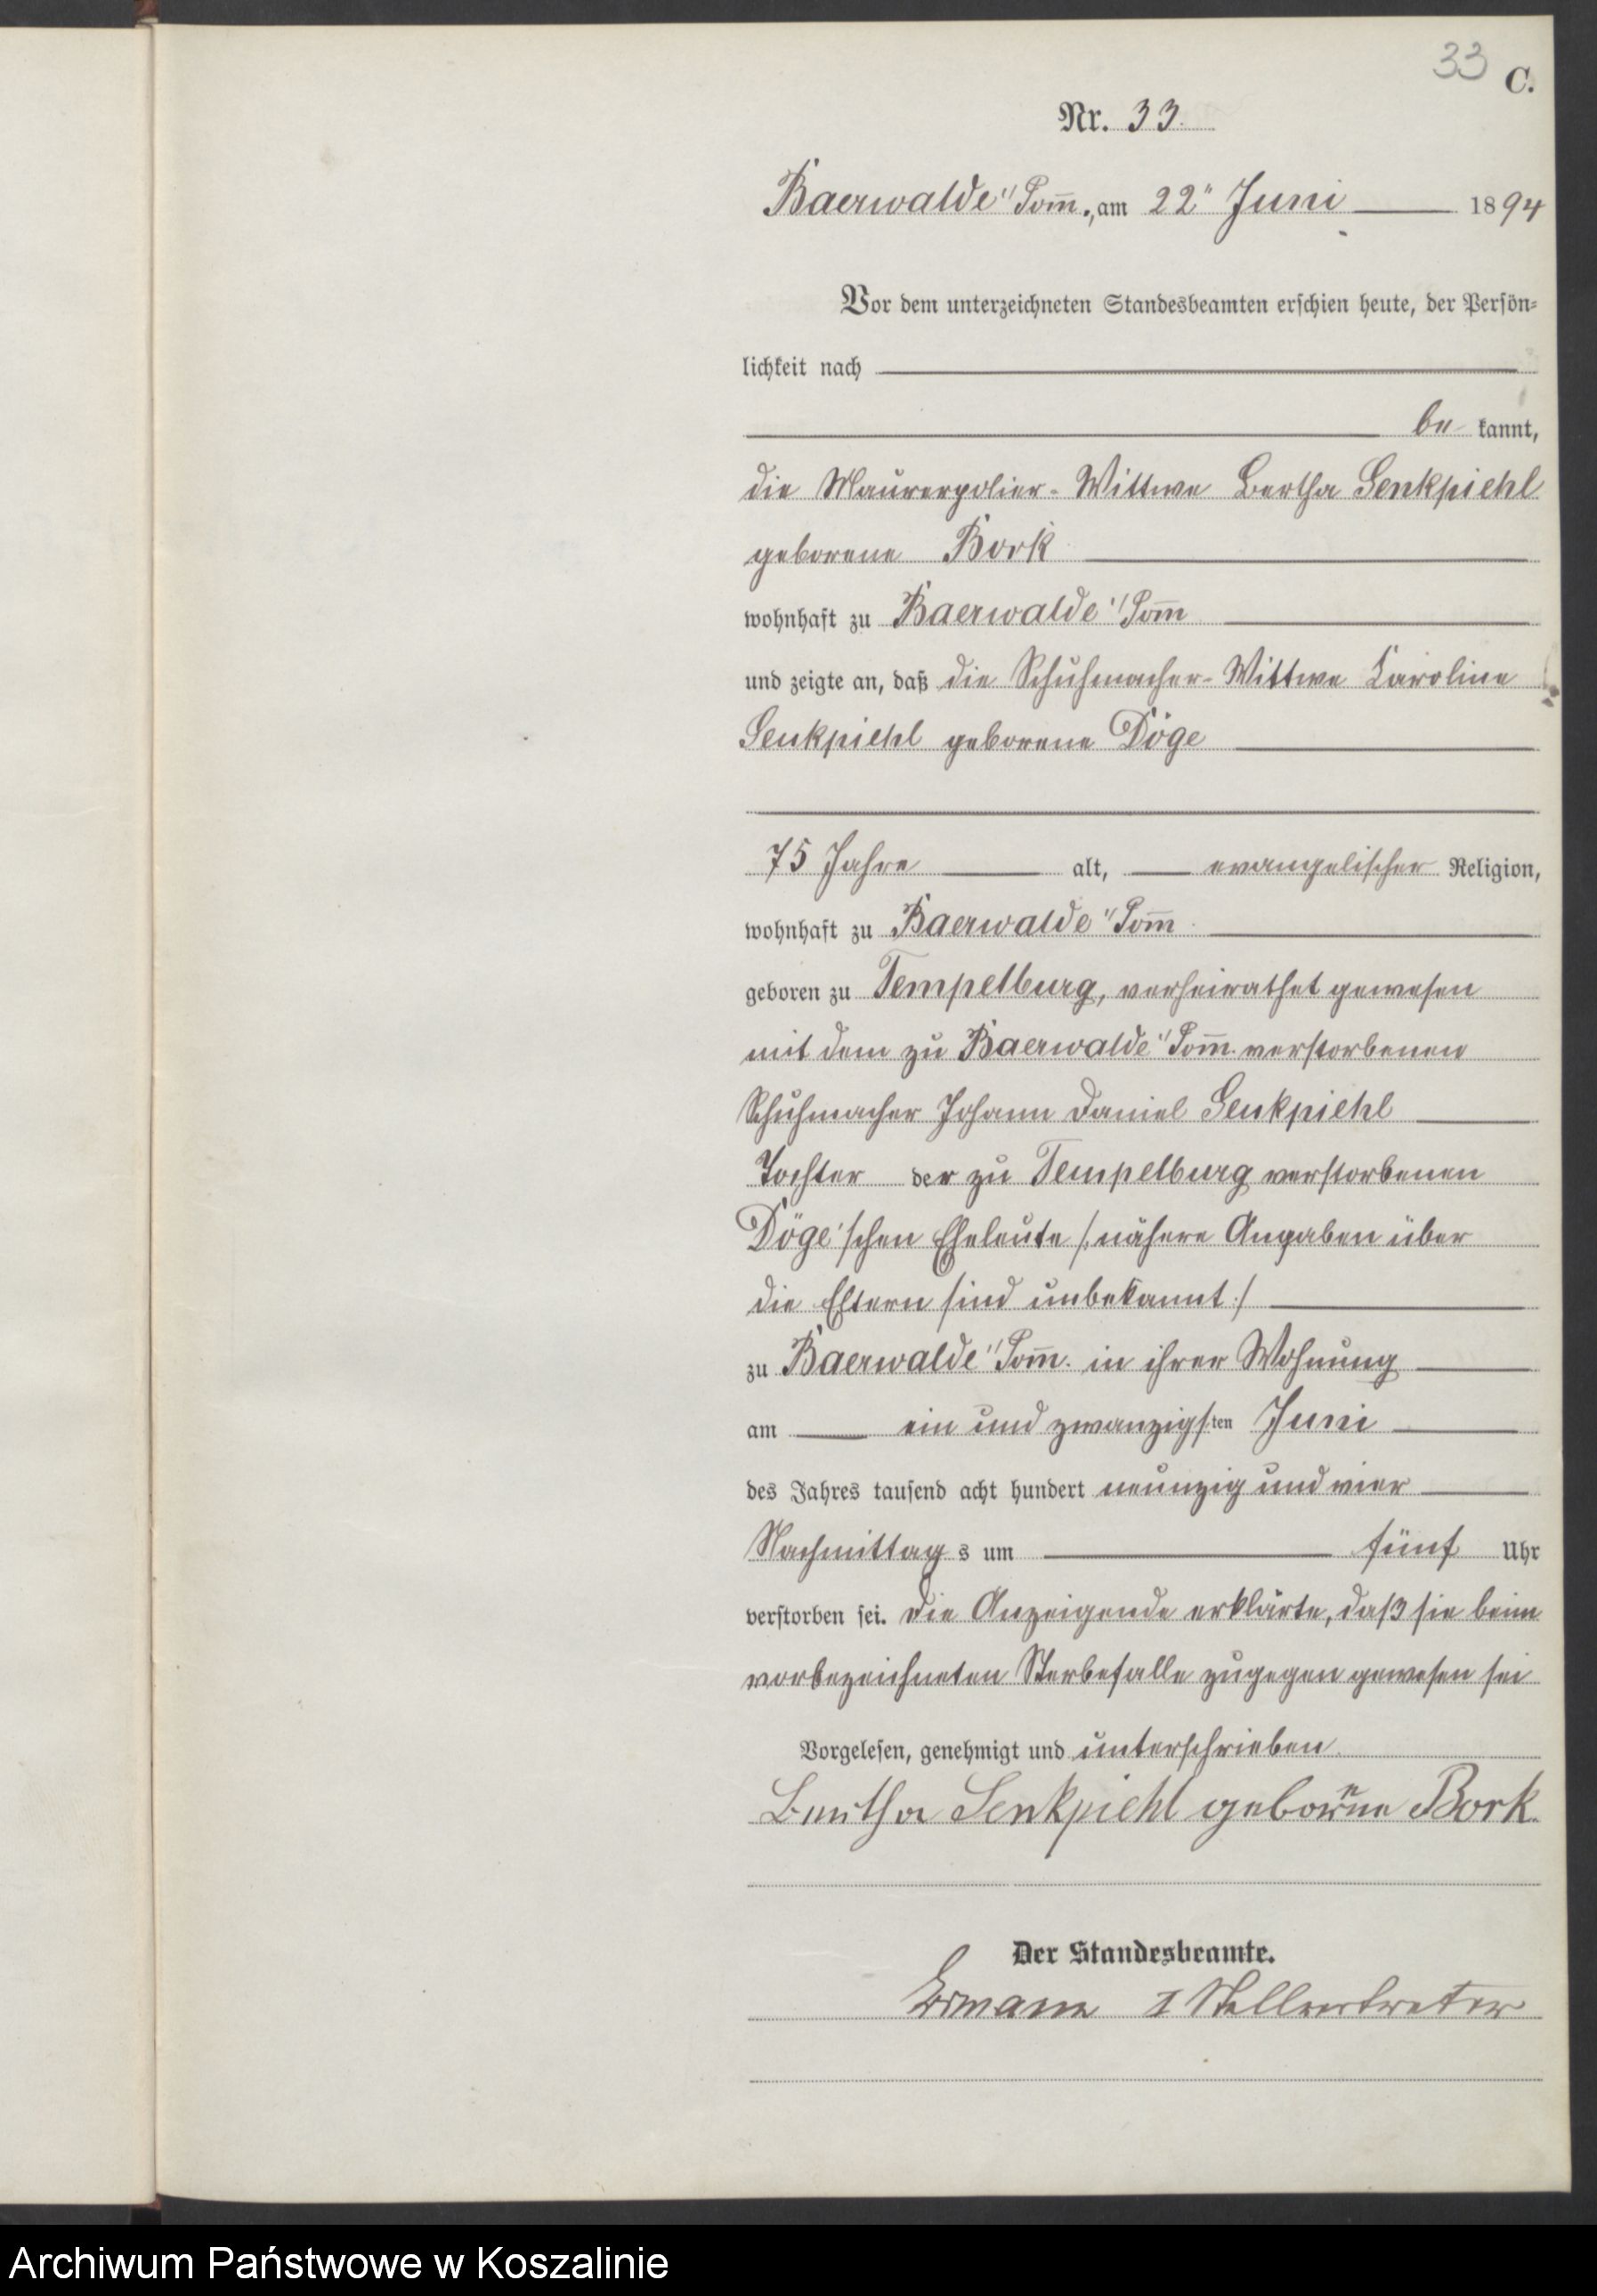 33
C.
Nr. 33.
Baerwalde i/Pom̅., am 22ten Juni 1894
Vor dem unterzeichneten Standesbeamten erschien heute, der Persön-
lichkeit nach
be kannt,
die Maurerpolier-Wittwe Bertha Senkpiehl
geborene Bork
wohnhaft zu Baerwalde i/Pom̅
und zeigte an, daß die Schuhmacher-Wittwe Karoline
Senkpiehl geborene Döge
75 Jahre alt, evangelischer Religion,
wohnhaft zu Baerwalde i/Pom̅
geboren zu Tempelburg, verheirathet gewesen
mit dem zu Baerwalde i/Pom̅. verstorbenen
Schuhmacher Johann Daniel Senkpiehl
Tochter der zu Tempelburg verstorbenen
Döge'schen Eheleute /: nähere Angaben über
die Eltern sind unbekannt :/
zu Baerwalde i/Pom̅. in ihrer Wohnung
am ein und zwanzigsten Juni
des Jahres tausend acht hundert neunzig und vier
Nachmittags um fünf Uhr
verstorben sei. Die Anzeigende erklärte, daß sie beim
vorbezeichneten Sterbefalle zugegen gewesen sei
Vorgelesen, genehmigt und unterschrieben.
Bertha Senkpiehl geborene Bork.
Der Standesbeamte.
I Stellvertreter
Archiwum Państwowe w Koszalinie